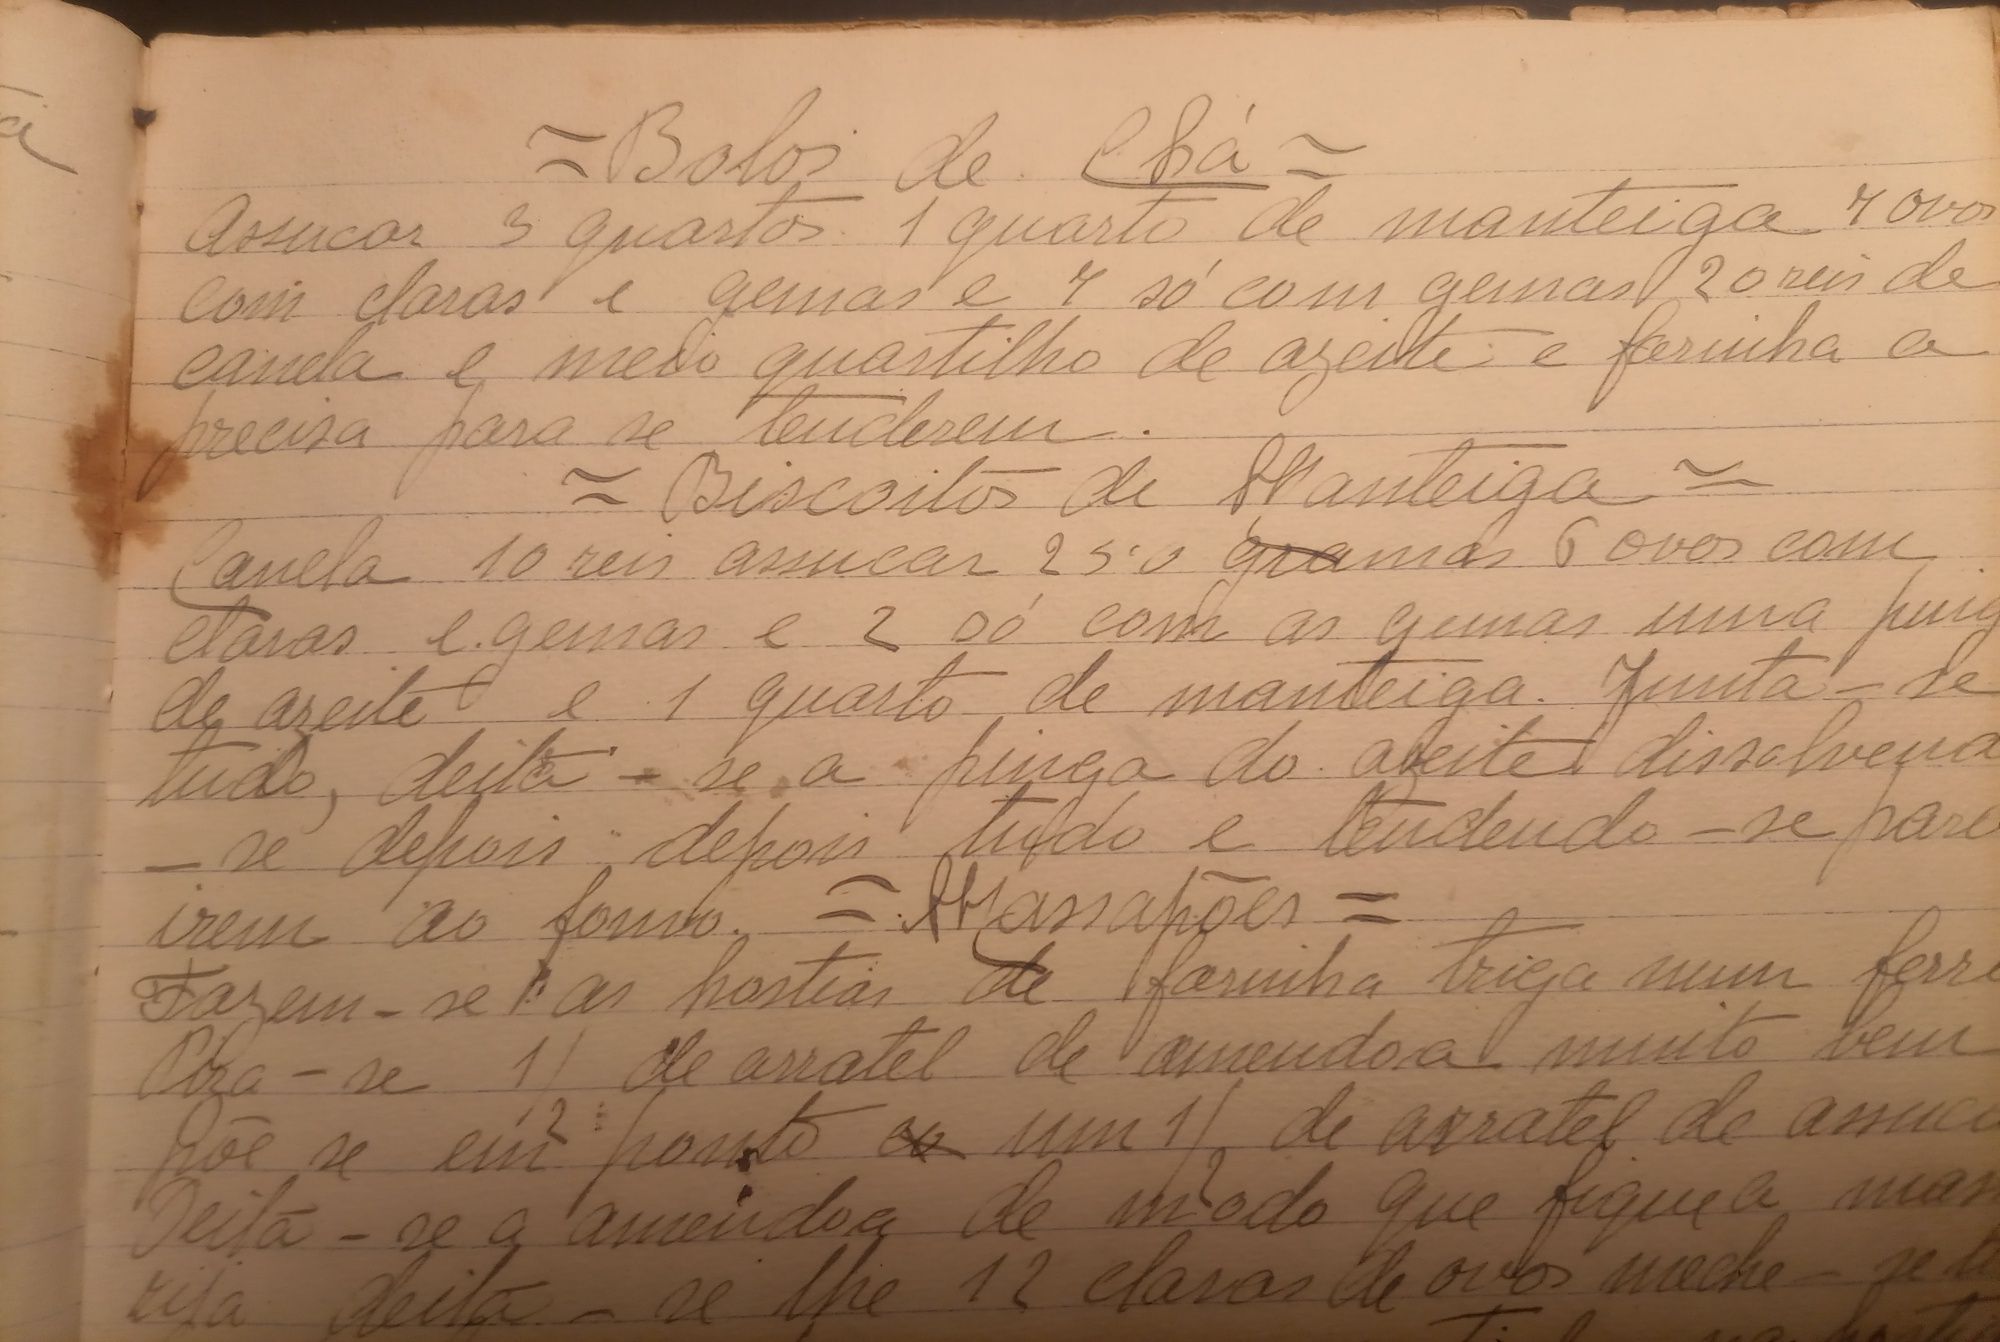 ≈ Bolos de Chá ≈
Assucar 3 quartos 1 quarto de manteiga 4 ovos
com claras e gemas e 4 só com gemas 20 reis de
canela e meio quartilho de azeite e farinha a
precisa para se tenderem.
≈ Biscoitos de Manteiga ≈
Canela 10 reis assucar 250 gramas 6 ovos com
claras e gemas e 2 só com as gemas uma ping
de azeite e 1 quarto de manteiga. Junta-se
tudo, deita-se a pinga do azeite dissolvend
-se depois depois tudo e tendendo-se para
irem ao forno. = Massapões =
Fazem-se as hostias de farinha triga num ferr
1/2 de arratel de amendoa muito bem
Põe se em ponto um 1/2 de arratel de assuca
Deita-se a amendoa de modo que fique a mas
rija deita-se lhe 12 claras de ovos meche-se